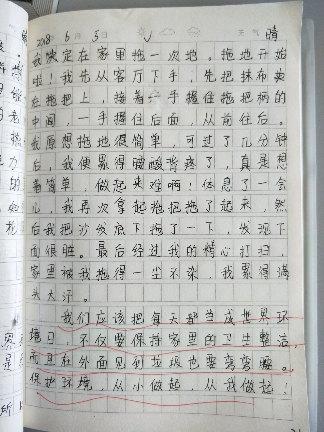 2018年6月5日 天气 晴
我决定在家里拖一次地。拖地开始
啦！我先从客厅下手，先把抹布夹
在拖把上，接着一手握住拖把柄的
中间，一手握住后面，从前往后。
我原想拖地很简单，可过了几分钟
后，我便累得腰酸背疼了，真是想
着简单，做起来难啊！休息了一会
儿，我再次拿起拖把拖了起来，然
后我把沙发底下拖了一下，发现下
面很脏。最后经过我的精心打扫，
家里被我拖得一尘不染，我累得满
头大汗。
我们应该把每天都当成世界环
境日，不仅要保持家里的卫生整洁，
而且在外面见到垃圾也要弯弯腰。
保护环境，从小做起，从我做起！